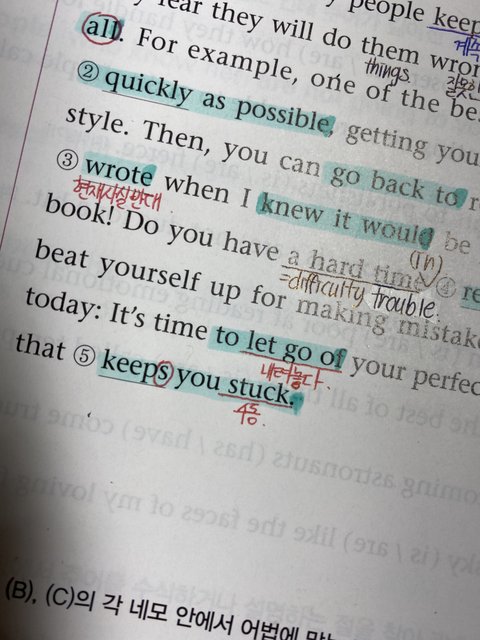 people keep
fear they will do them wron
계속
all. For example, one of the be
things
② quickly as possible, getting you
style. Then, you can go back to r
③ wrote when I knew it would be
현재사실반대
(in)
book! Do you have a hard time ④ re
=difficulty trouble.
beat yourself up for making mistake
today: It's time to let go of your perfec
내려놓다.
that ⑤ keeps you stuck.
수동.
coming astronauts (has / have) come true
sky (is / are) like the faces of my loving
(B), (C)의 각 네모 안에서 어법에 맞는